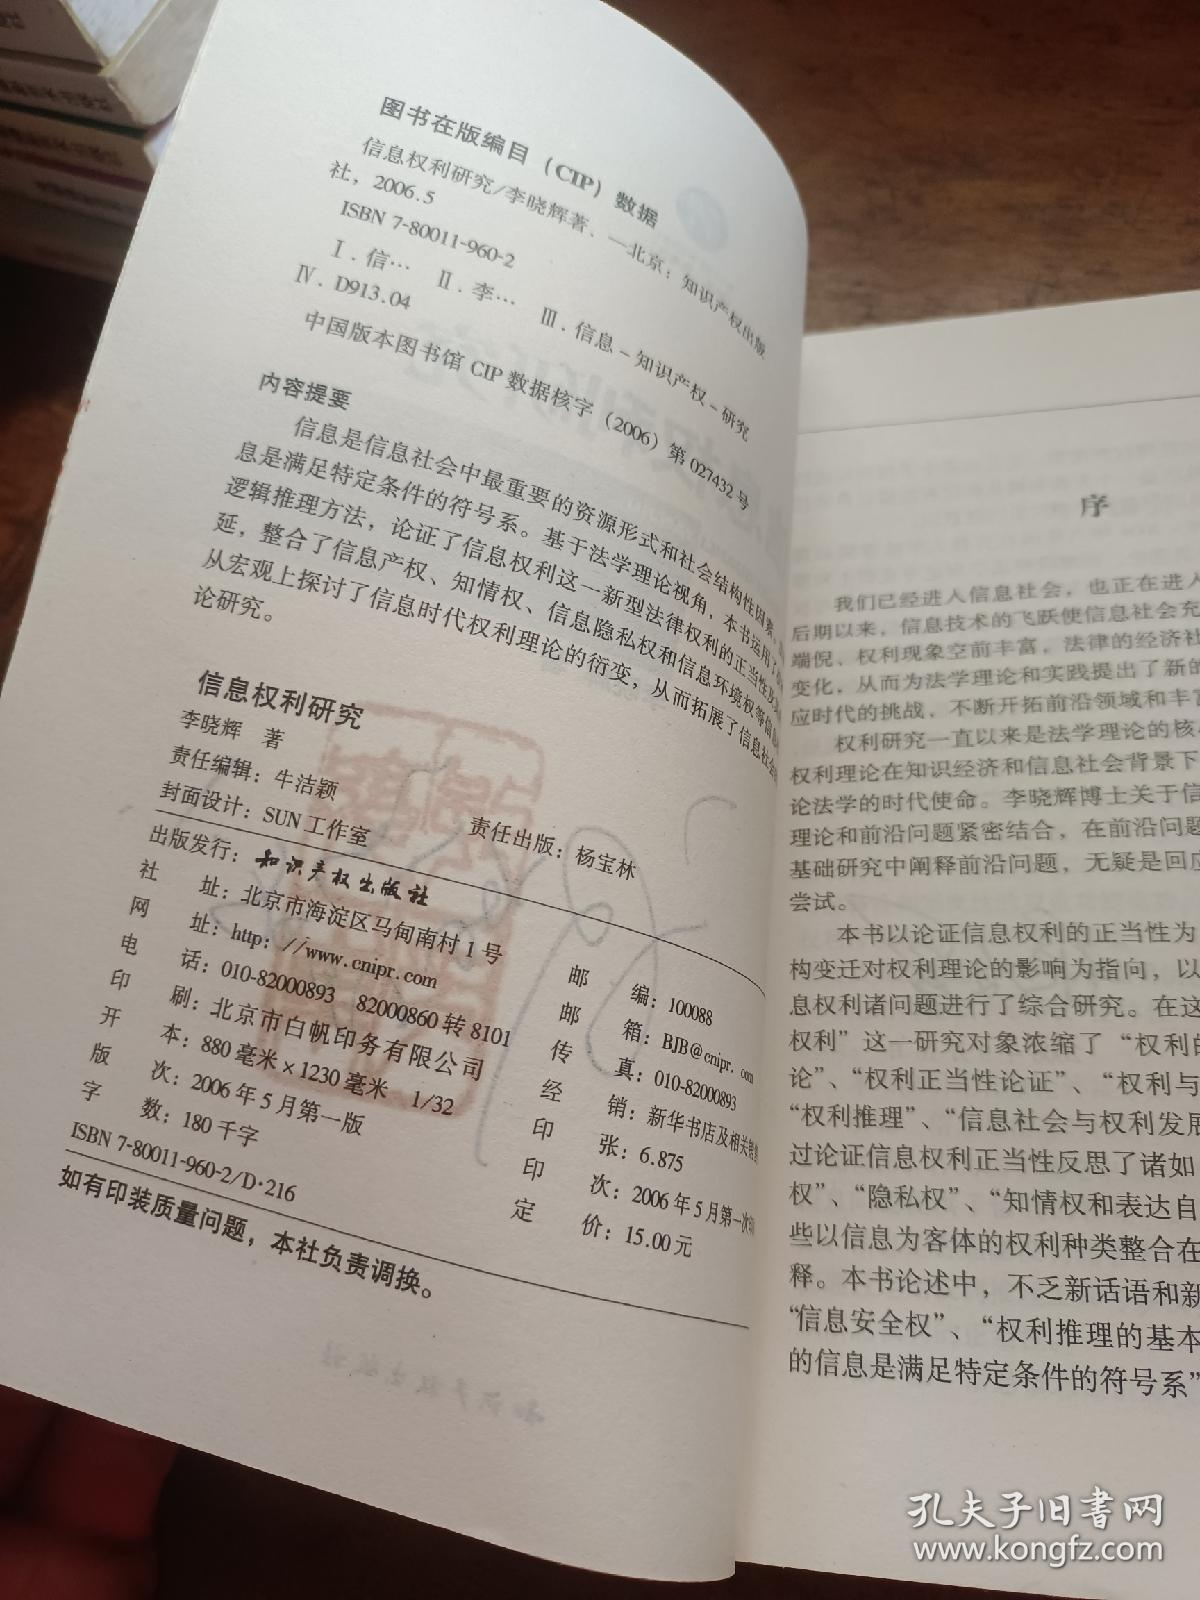 图书在版编目（CIP）数据
信息权利研究/李晓辉著．—北京：知识产权出版
社，2006.5
ISBN 7-80011-960-2
Ⅰ．信… Ⅱ．李… Ⅲ．信息－知识产权－研究
Ⅳ．D913.04
中国版本图书馆 CIP 数据核字（2006）第 027432 号
内容提要
信息是信息社会中最重要的资源形式和社会结构性因素。
息是满足特定条件的符号系。基于法学理论视角，本书运用了
逻辑推理方法，论证了信息权利这一新型法律权利的正当性及
延，整合了信息产权、知情权、信息隐私权和信息环境权等
从宏观上探讨了信息时代权利理论的衍变，从而拓展了信息社会
论研究。
信息权利研究
李晓辉 著
责任编辑：牛洁颖
封面设计：SUN 工作室 责任出版：杨宝林
出版发行：知识产权出版社
社 址：北京市海淀区马甸南村 1 号 邮 编：100088
网 址：http：//www.cnipr.com 邮 箱：BJB@cnipr.com
电 话：010-82000893 82000860 转 8101 传 真：010-82000893
印 刷：北京市白帆印务有限公司 经 销：新华书店及相关
开 本：880 毫米×1230 毫米 1/32 印 张：6.875
版 次：2006 年 5 月第一版 印 次：2006 年 5 月第一次
字 数：180 千字 定 价：15.00 元
ISBN 7-80011-960-2/D·216
如有印装质量问题，本社负责调换。
序
我们已经进入信息社会，也正在进入
后期以来，信息技术的飞跃使信息社会充
端倪、权利现象空前丰富，法律的经济社
变化，从而为法学理论和实践提出了新的
应时代的挑战，不断开拓前沿领域和丰富
权利研究一直以来是法学理论的核
权利理论在知识经济和信息社会背景下
论法学的时代使命。李晓辉博士关于信
理论和前沿问题紧密结合，在前沿问题
基础研究中阐释前沿问题，无疑是回应
尝试。
本书以论证信息权利的正当性为
构变迁对权利理论的影响为指向，以
息权利诸问题进行了综合研究。在这
权利”这一研究对象浓缩了“权利的
论”、“权利正当性论证”、“权利与
“权利推理”、“信息社会与权利发展
过论证信息权利正当性反思了诸如
权”、“隐私权”、“知情权和表达自
些以信息为客体的权利种类整合在
释。本书论述中，不乏新话语和新
“信息安全权”、“权利推理的基本
的信息是满足特定条件的符号系”
孔夫子旧书网
www.kongfz.com